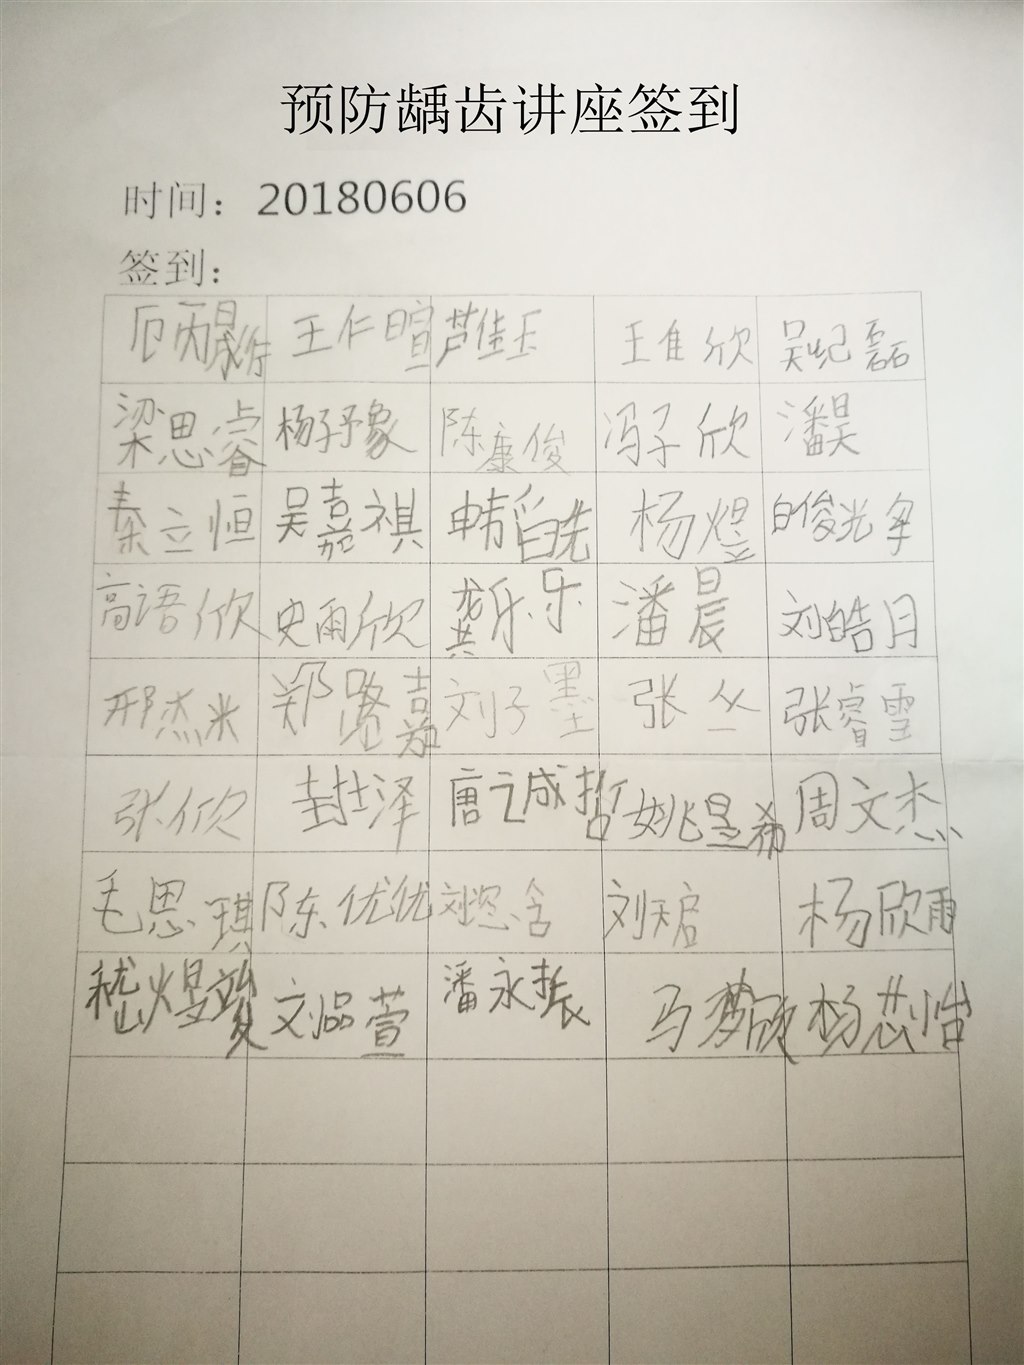 预防龋齿讲座签到
时间：20180606
签到：
王仁暄 芦佳玉 王佳欣 吴纪磊
梁思睿 杨子豫 陈康俊 冯子欣 潘昊
秦立恒 吴嘉祺 杨煜
高语欣 史雨欣 龚乐乐 潘晨 刘皓月
邢杰米 郑路嘉 刘子墨 张丛 张睿雪
张欣 封泽 唐之诚哲 姚昱希 周文杰
毛思琪 陈优优 刘天启 杨欣雨
嵇煜竣 刘品萱 潘永振 马梦欣